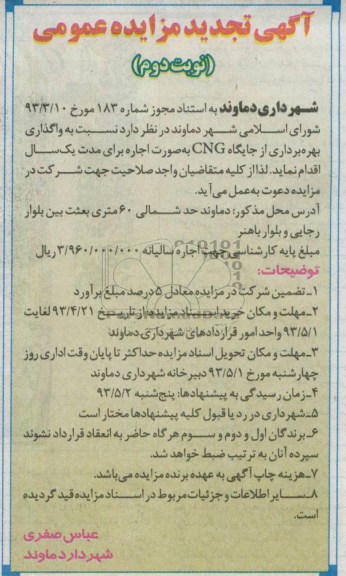 آگهی تجدید مزایده عمومی
(نوبت دوم)
شهرداری دماوند به استناد مجوز شماره ۱۸۳ مورخ ۹۳/۳/۱۰
شورای اسلامی شهر دماوند در نظر دارد نسبت به واگذاری
بهره‌برداری از جایگاه CNG به صورت اجاره برای مدت یک سال
اقدام نماید. لذا از کلیه متقاضیان واجد صلاحیت جهت شرکت در
مزایده دعوت به عمل می‌آید.
آدرس محل مذکور: دماوند حد شمالی ۶۰ متری بعثت بین بلوار
رجایی و بلوار باهنر
مبلغ پایه کارشناسی جهت اجاره سالیانه ۳/۹۶۰/۰۰۰/۰۰۰ ریال
توضیحات:
۱ـ تضمین شرکت در مزایده معادل ۵ درصد مبلغ برآورد
۲ـ مهلت و مکان خرید اسناد مزایده از تاریخ ۹۳/۴/۲۱ لغایت
۹۳/۵/۱ واحد امور قراردادهای شهرداری دماوند
۳ـ مهلت و مکان تحویل اسناد مزایده حداکثر تا پایان وقت اداری روز
چهارشنبه مورخ ۹۳/۵/۱ دبیرخانه شهرداری دماوند
۴ـ زمان رسیدگی به پیشنهادها: پنج‌شنبه ۹۳/۵/۲
۵ـ شهرداری در رد یا قبول کلیه پیشنهادها مختار است
۶ـ برندگان اول و دوم و سوم هرگاه حاضر به انعقاد قرارداد نشوند
سپرده آنان به ترتیب ضبط خواهد شد.
۷ـ هزینه چاپ آگهی به عهده برنده مزایده می‌باشد.
۸ـ سایر اطلاعات و جزئیات مربوط در اسناد مزایده قید گردیده
است.
عباس صفری
شهردار دماوند